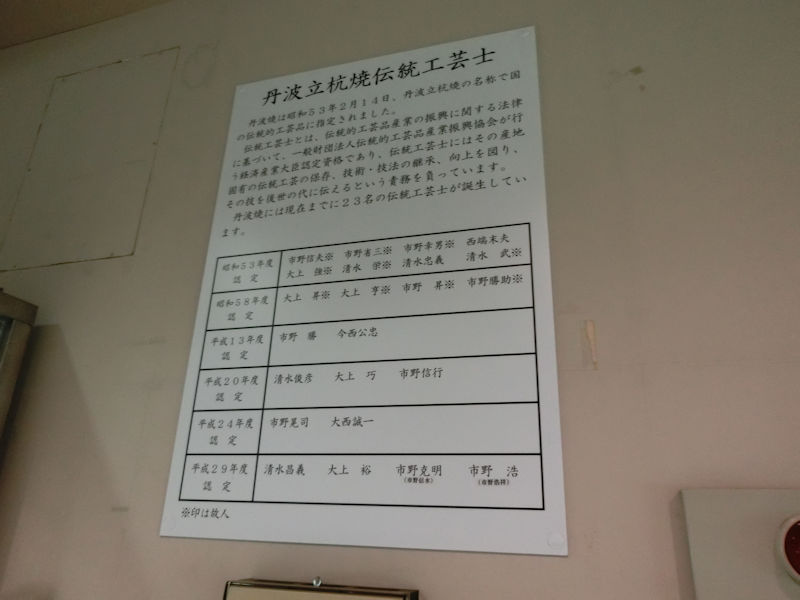 丹波立杭焼伝統工芸士
丹波焼は昭和53年2月14日、丹波立杭焼の名称で国
の伝統的工芸品に指定されました。
伝統工芸士とは、伝統的工芸品産業の振興に関する法律
に基づいて、一般財団法人伝統的工芸品産業振興協会が行
う経済産業大臣認定資格であり、伝統工芸士にはその産地
固有の伝統工芸の保存、技術・技法の継承、向上を図り、
その技を後世の代に伝えるという責務を負っています。
丹波焼には現在までに23名の伝統工芸士が誕生してい
ます。
昭和53年度
認 定
市野信夫※ 市野省三※ 市野幸男※ 西端末夫
大上 強※ 清水 栄※ 清水忠義 清水 武※
昭和58年度
認 定
大上 昇※ 大上 亨※ 市野 昇※ 市野勝助※
平成13年度
認 定
市野 勝 今西公忠
平成20年度
認 定
清水俊彦 大上 巧 市野信行
平成24年度
認 定
市野晃司 大西誠一
平成29年度
認 定
清水昌義 大上 裕 市野克明 市野 浩
(市野信水) (市野浩祥)
※印は故人